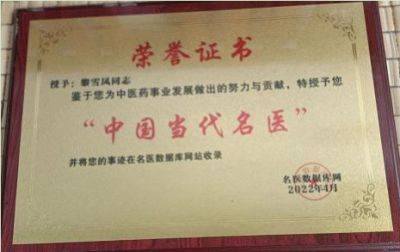 荣誉证书
授予：黎雪凤同志
鉴于您为中医药事业发展做出的努力与贡献，特授予您
“中国当代名医”
并将您的事迹在名医数据库网站收录
名医数据库网
2022年4月